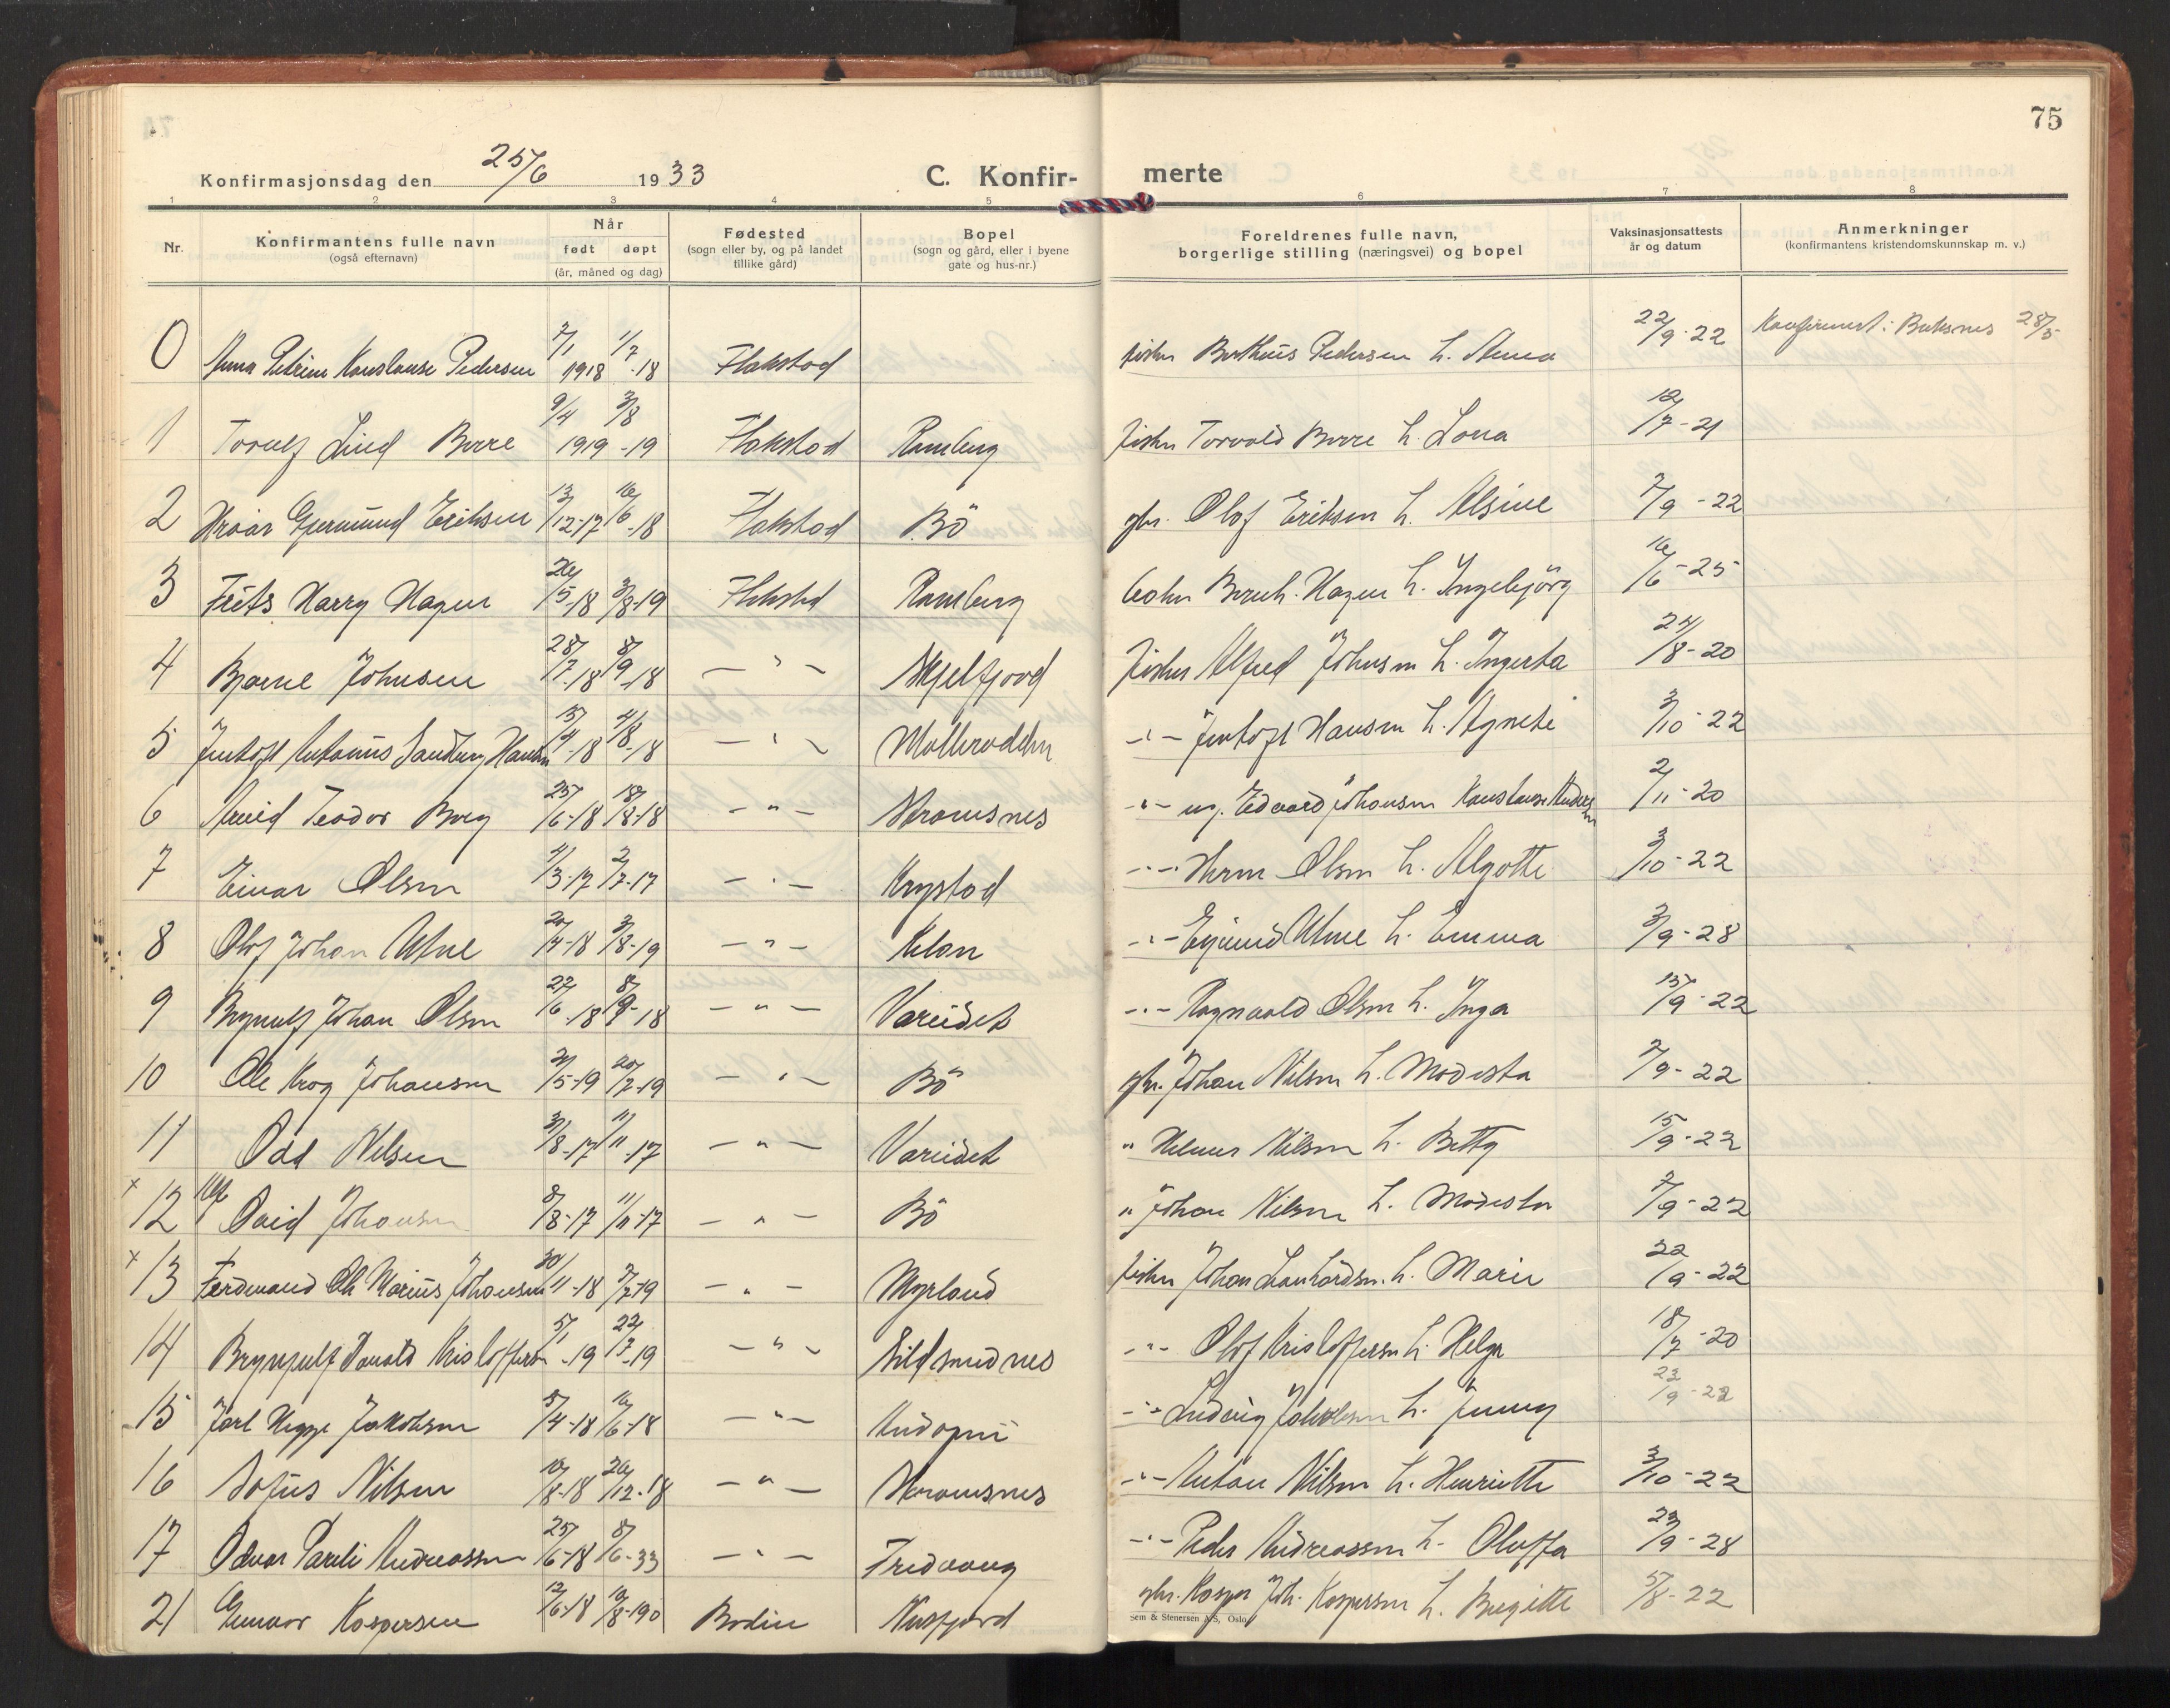 75
Konfirmasjonsdag den 25/6 1933 C. Konfir- merte
1 2 3 4 5 6 7 8
Nr. Konfirmantens fulle navn (også efternavn) Når født døpt (år, måned og dag) Fødested (sogn eller by, og på landet tillike gård) Bopel (sogn og gård, eller i byene gate og hus-nr.) Foreldrenes fulle navn, borgerlige stilling (næringsvei) og bopel Vaksinasjonsattests år og datum Anmerkninger (konfirmantens kristendomskunnskap m. v.)
0 Anna Petrine Konstanse Pedersen 7/1 1918 1/7-18 Flakstad fisker Bertheus Pedersen h. Anna 22/9-22 Konfirmert i Buksnes 28/5
1 Torulf Lind Borre 9/4 1919 3/8-19 Flakstad Ramberg fisker Torvald Borre h. Lona 12/7-21
2 Hroar Gjermund Eriksen 13/12-17 16/6-18 Flakstad Bö gbr. Olaf Eriksen h. Alsine 7/9-22
3 Frits Harry Hagen 26/5-18 3/8-19 Flakstad Ramberg Hagen h. Ingebjörg 16/6-25
4 Bjarne Johnsen 28/7-18 8/9-18 - " - Skjelfjord fisker Alfred Johnsen h. Ingerta 24/8-20
5 Jentoft Antonius Hansen 15/4-18 4/8-18 - " - Mölnarodden - " - Jentoft Hansen h. Agnete 3/10-22
6 Arvid Teodor Borg 25/6-18 18/8-18 - " - Stromsnes - " - ug. Edvard Johansen Konstanse Andersen 2/11-20
7 Einar Olsen 4/3-17 2/7-17 - " - Krystad - " - Herm Olsen h. Algotte 3/10-22
8 Olaf Johan Utne 20/4-18 3/8-19 - " - Kilan - " - Utne h. Emma 3/9-28
9 Brynulf Johan Olsen 22/6-18 8/9-18 - " - Vareidet - " - Ragnvald Olsen h. Inga 15/9-22
10 Ole Krog Johansen 21/5-19 20/7-19 - " - Bö gbr. Johan Nilsen h. Modesta 7/9-22
11 Odd Nilsen 31/8-17 11/11-17 - " - Vareidet " Helmer Nilsen h. Betty 15/9-22
x 12 Johansen 8/8-17 11/11-17 - " - Bö " Johan Nilsen h. Modesta 7/9-22
x 13 Ferdinand Ole Marius Johansen 30/11-18 7/7-19 - " - Myrland fisker Johan h. Marie 22/9-22
14 Brynjulf Harald Kristoffersen 5/1-19 22/7-19 - " - - " - Olaf Kristoffersen h. Helga 18/7-20
15 Jarl Jakobsen 5/4-18 16/6-18 - " - - " - Ludvig Jakobsen h. Jenny 22/9-22
16 Sofus Nilsen 10/8-18 26/12-18 - " - Stromsnes - " - Anton Nilsen h. Henriette 3/10-22
17 Odvar Pareli Andreassen 25/6-18 8/6-33 - " - Fredvang - " - Peder Andreassen h. Oluffa 22/9-28
21 Gunnar Kaspersen 12/6-18 Bodin Nusfjord gbr. Kasper Joh. Kaspersen h. Birgitte 5/8-22
Sem & Stenersen A/S, Oslo.